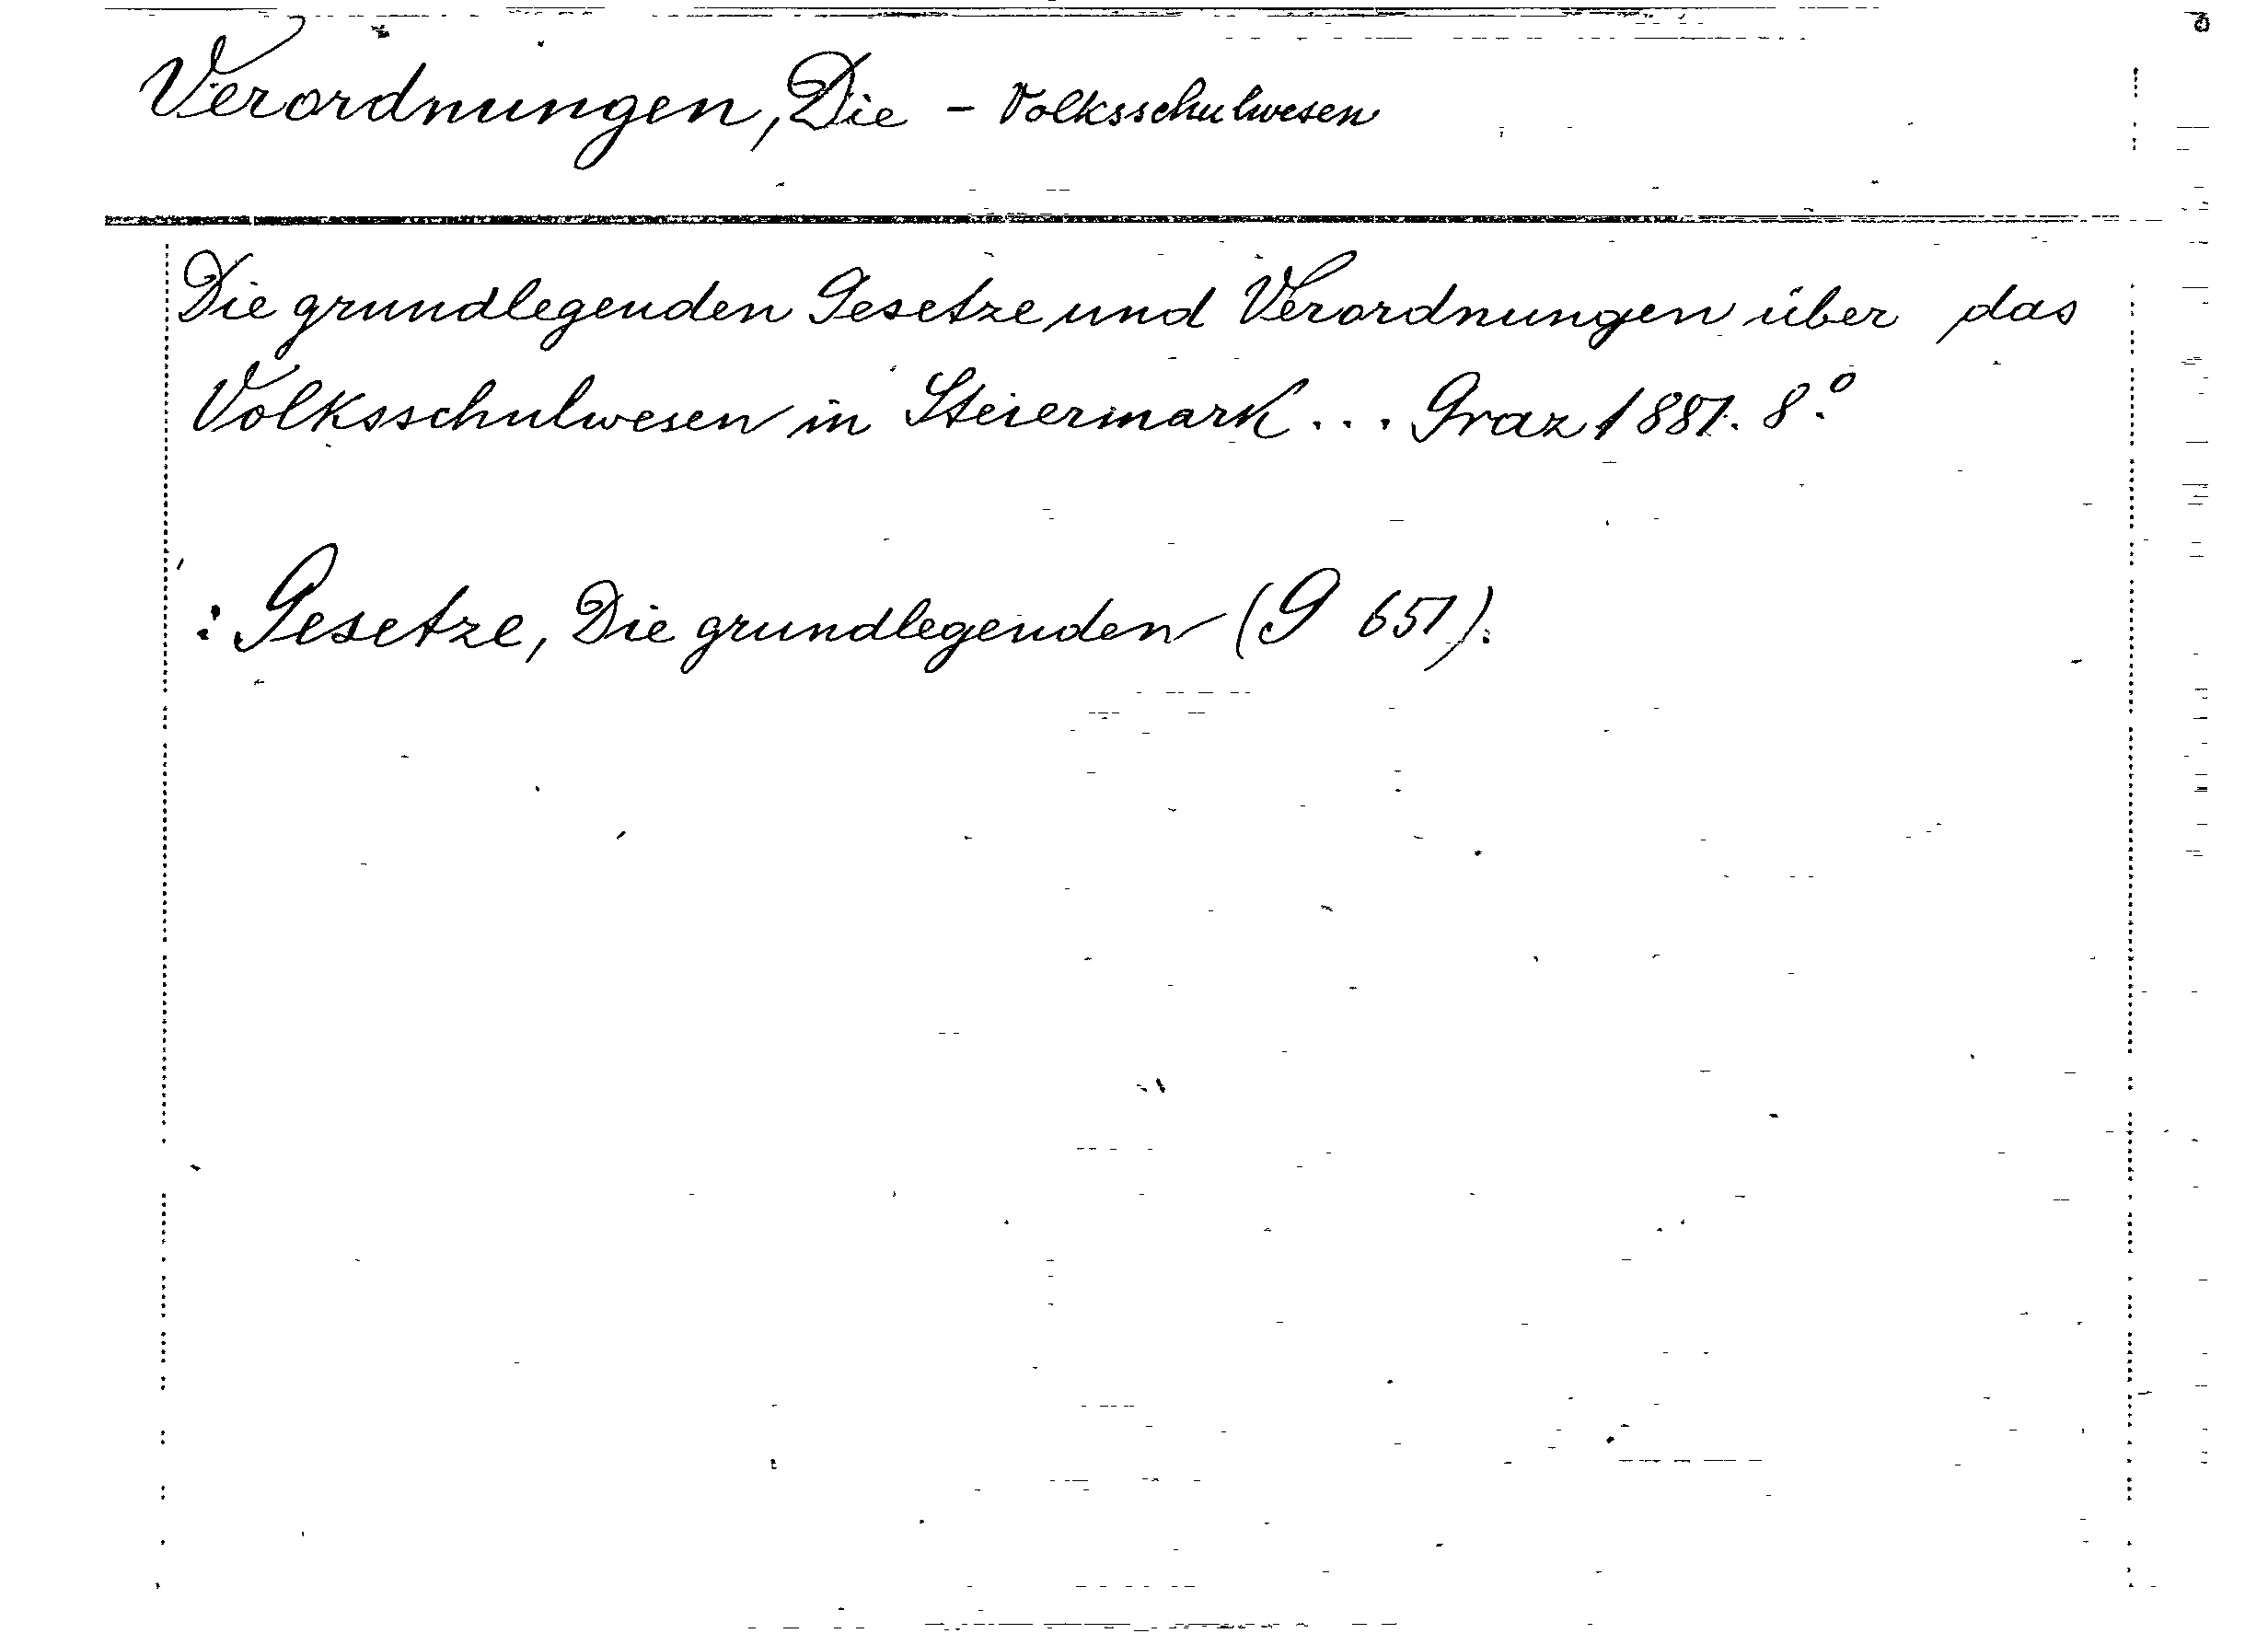 Verordnungen, Die - Volksschulwesen
Die grundlegenden Gesetze und Verordnungen über das
Volksschulwesen in Steiermark... Graz 1881. 8.º
: Gesetze, Die grundlegenden (G 651).